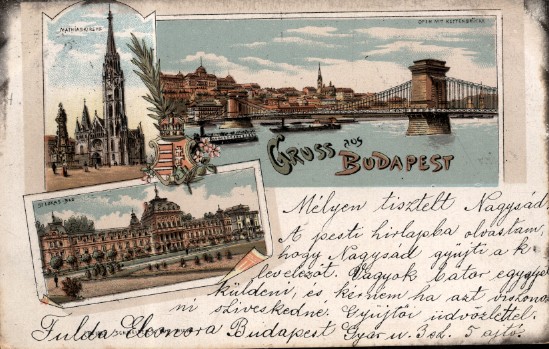 MATHIASKIRCHE
OFEN MIT KETTENBRÜCKE
GRUSS AUS
BUDAPEST
ST LUKAS-BAD
Mélyen tisztelt Nagysád!
A pesti hirlapba olvastam,
hogy Nagysád gyüjti a k
levelezőt. Vagyok bátor egygyet
küldeni, és kérném ha azt viszonoz
ni sziveskedne. Gyüjtői üdvözlettel.
Fulda Eleonora Budapest Gyár u. 3 ed. 5 ajtó.